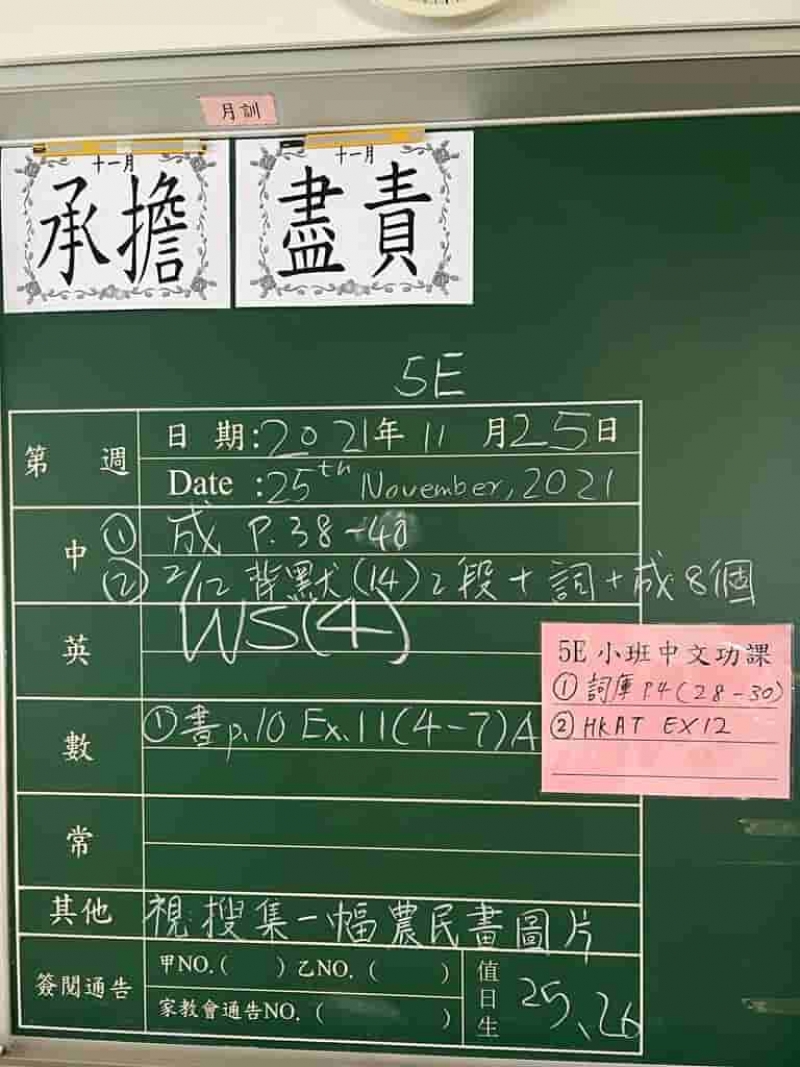 月訓
十一月
承擔
十一月
盡責
5E
第 週
日 期:2021年11月25日
Date :25th November, 2021
中
① 成 P.38-40
② 2/12 背默(14)2段+詞+成8個
英
WS(4)
5E 小班中文功課
① 詞庫 P4(28-30)
② HKAT EX12
數
①書p.10 Ex.11(4-7)A
常
其他
視:搜集一幅農民畫圖片
簽閱通告
甲NO.( )乙NO.( )
家教會通告NO.( )
值日生
25、26